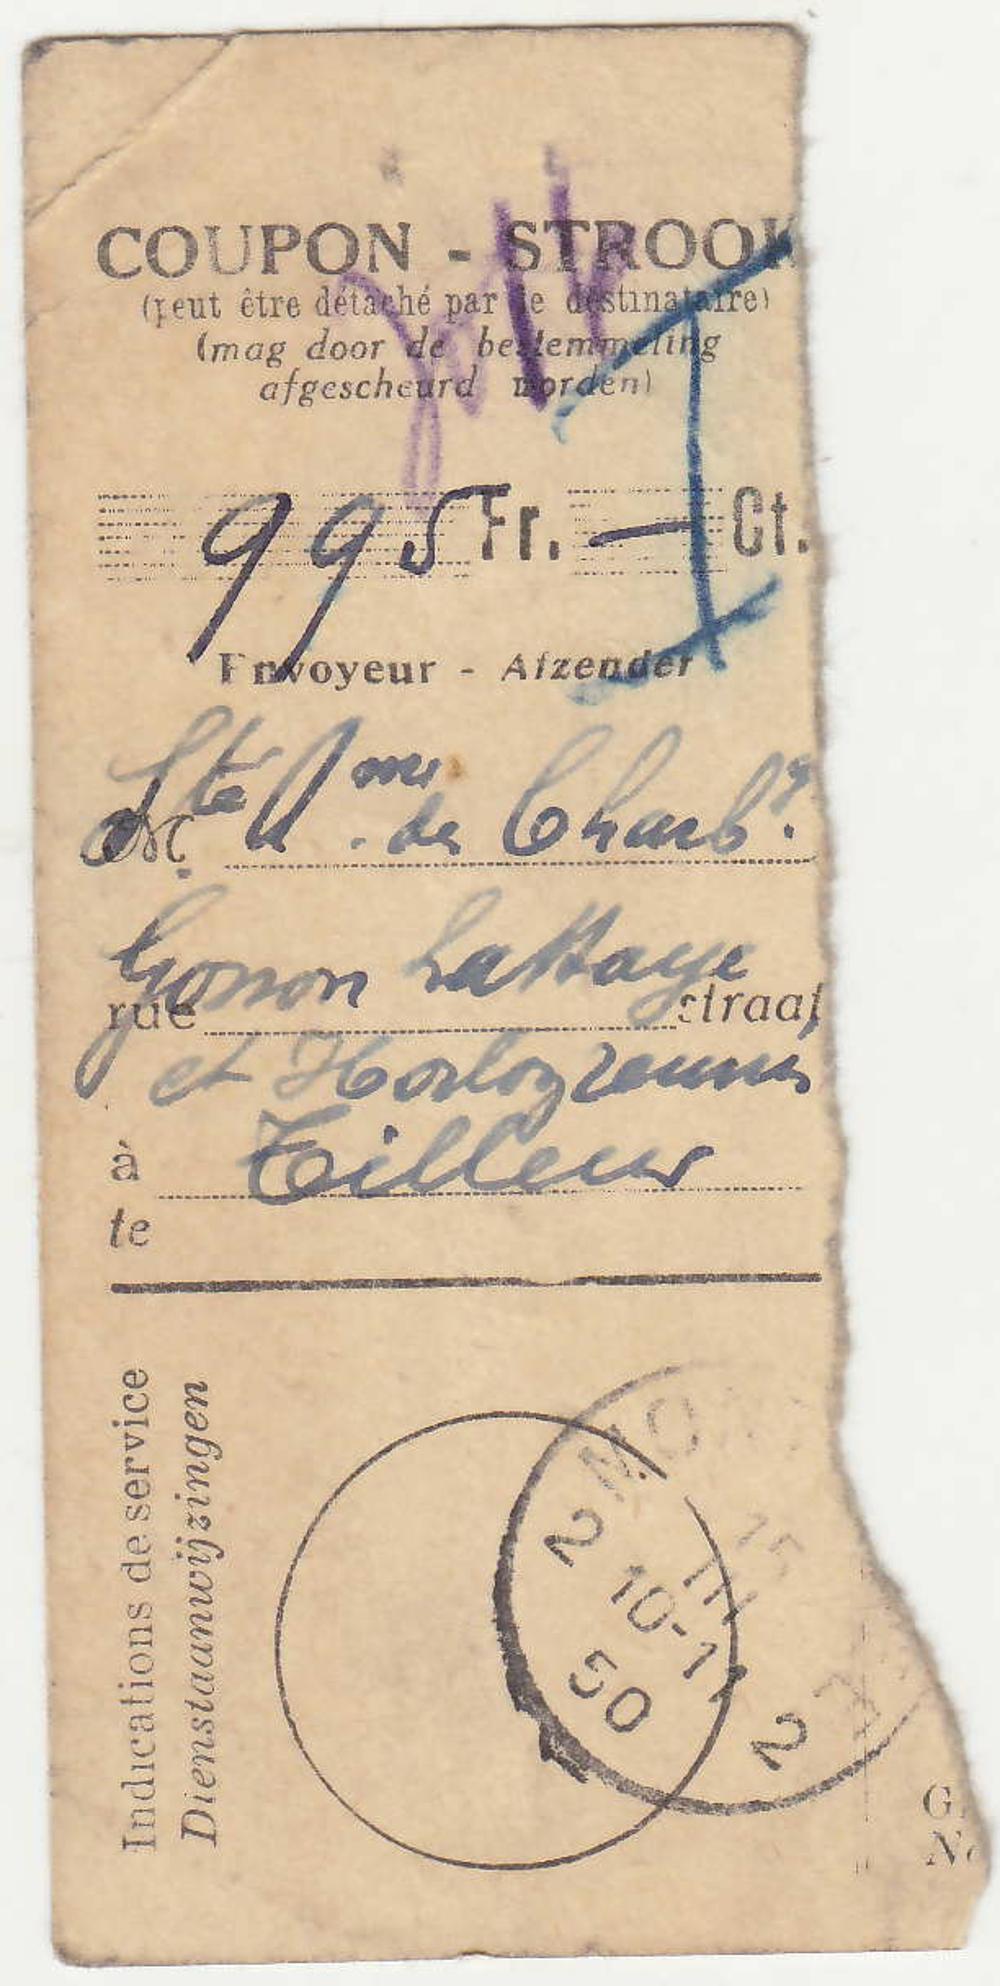 COUPON - STROOK
(peut être détaché par le destinataire)
(mag door de bestemmeling
afgescheurd worden)
995 Fr. — Ct.
Envoyeur - Afzender
M. Sté Ame. de Charbg.
Gonon LaHaye
rue straat
et Horloz reunis
à Tilleur
te
Indications de service
Dienstaanwijzingen
MO
2 2
15
III
10-11
50
G.
No